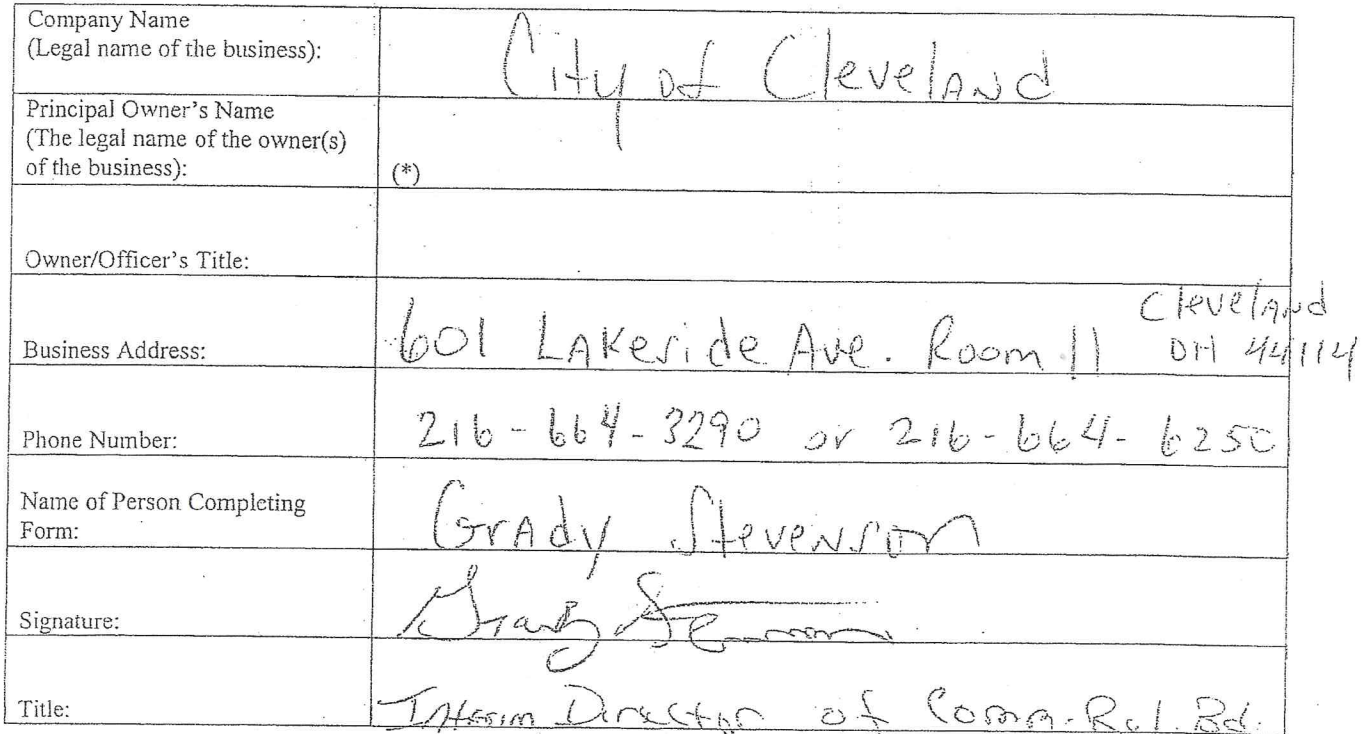 Company Name
(Legal name of the business):
City of Cleveland
Principal Owner's Name
(The legal name of the owner(s)
of the business):
(*)
Owner/Officer's Title:
Business Address:
601 Lakeside Ave. Room 11
Cleveland
OH 44114
Phone Number:
216-664-3290 or 216-664-6250
Name of Person Completing
Form:
Grady Stevenson
Signature:
Grady Stevenson
Title:
Interim Director of Comm. Rel. Bd.